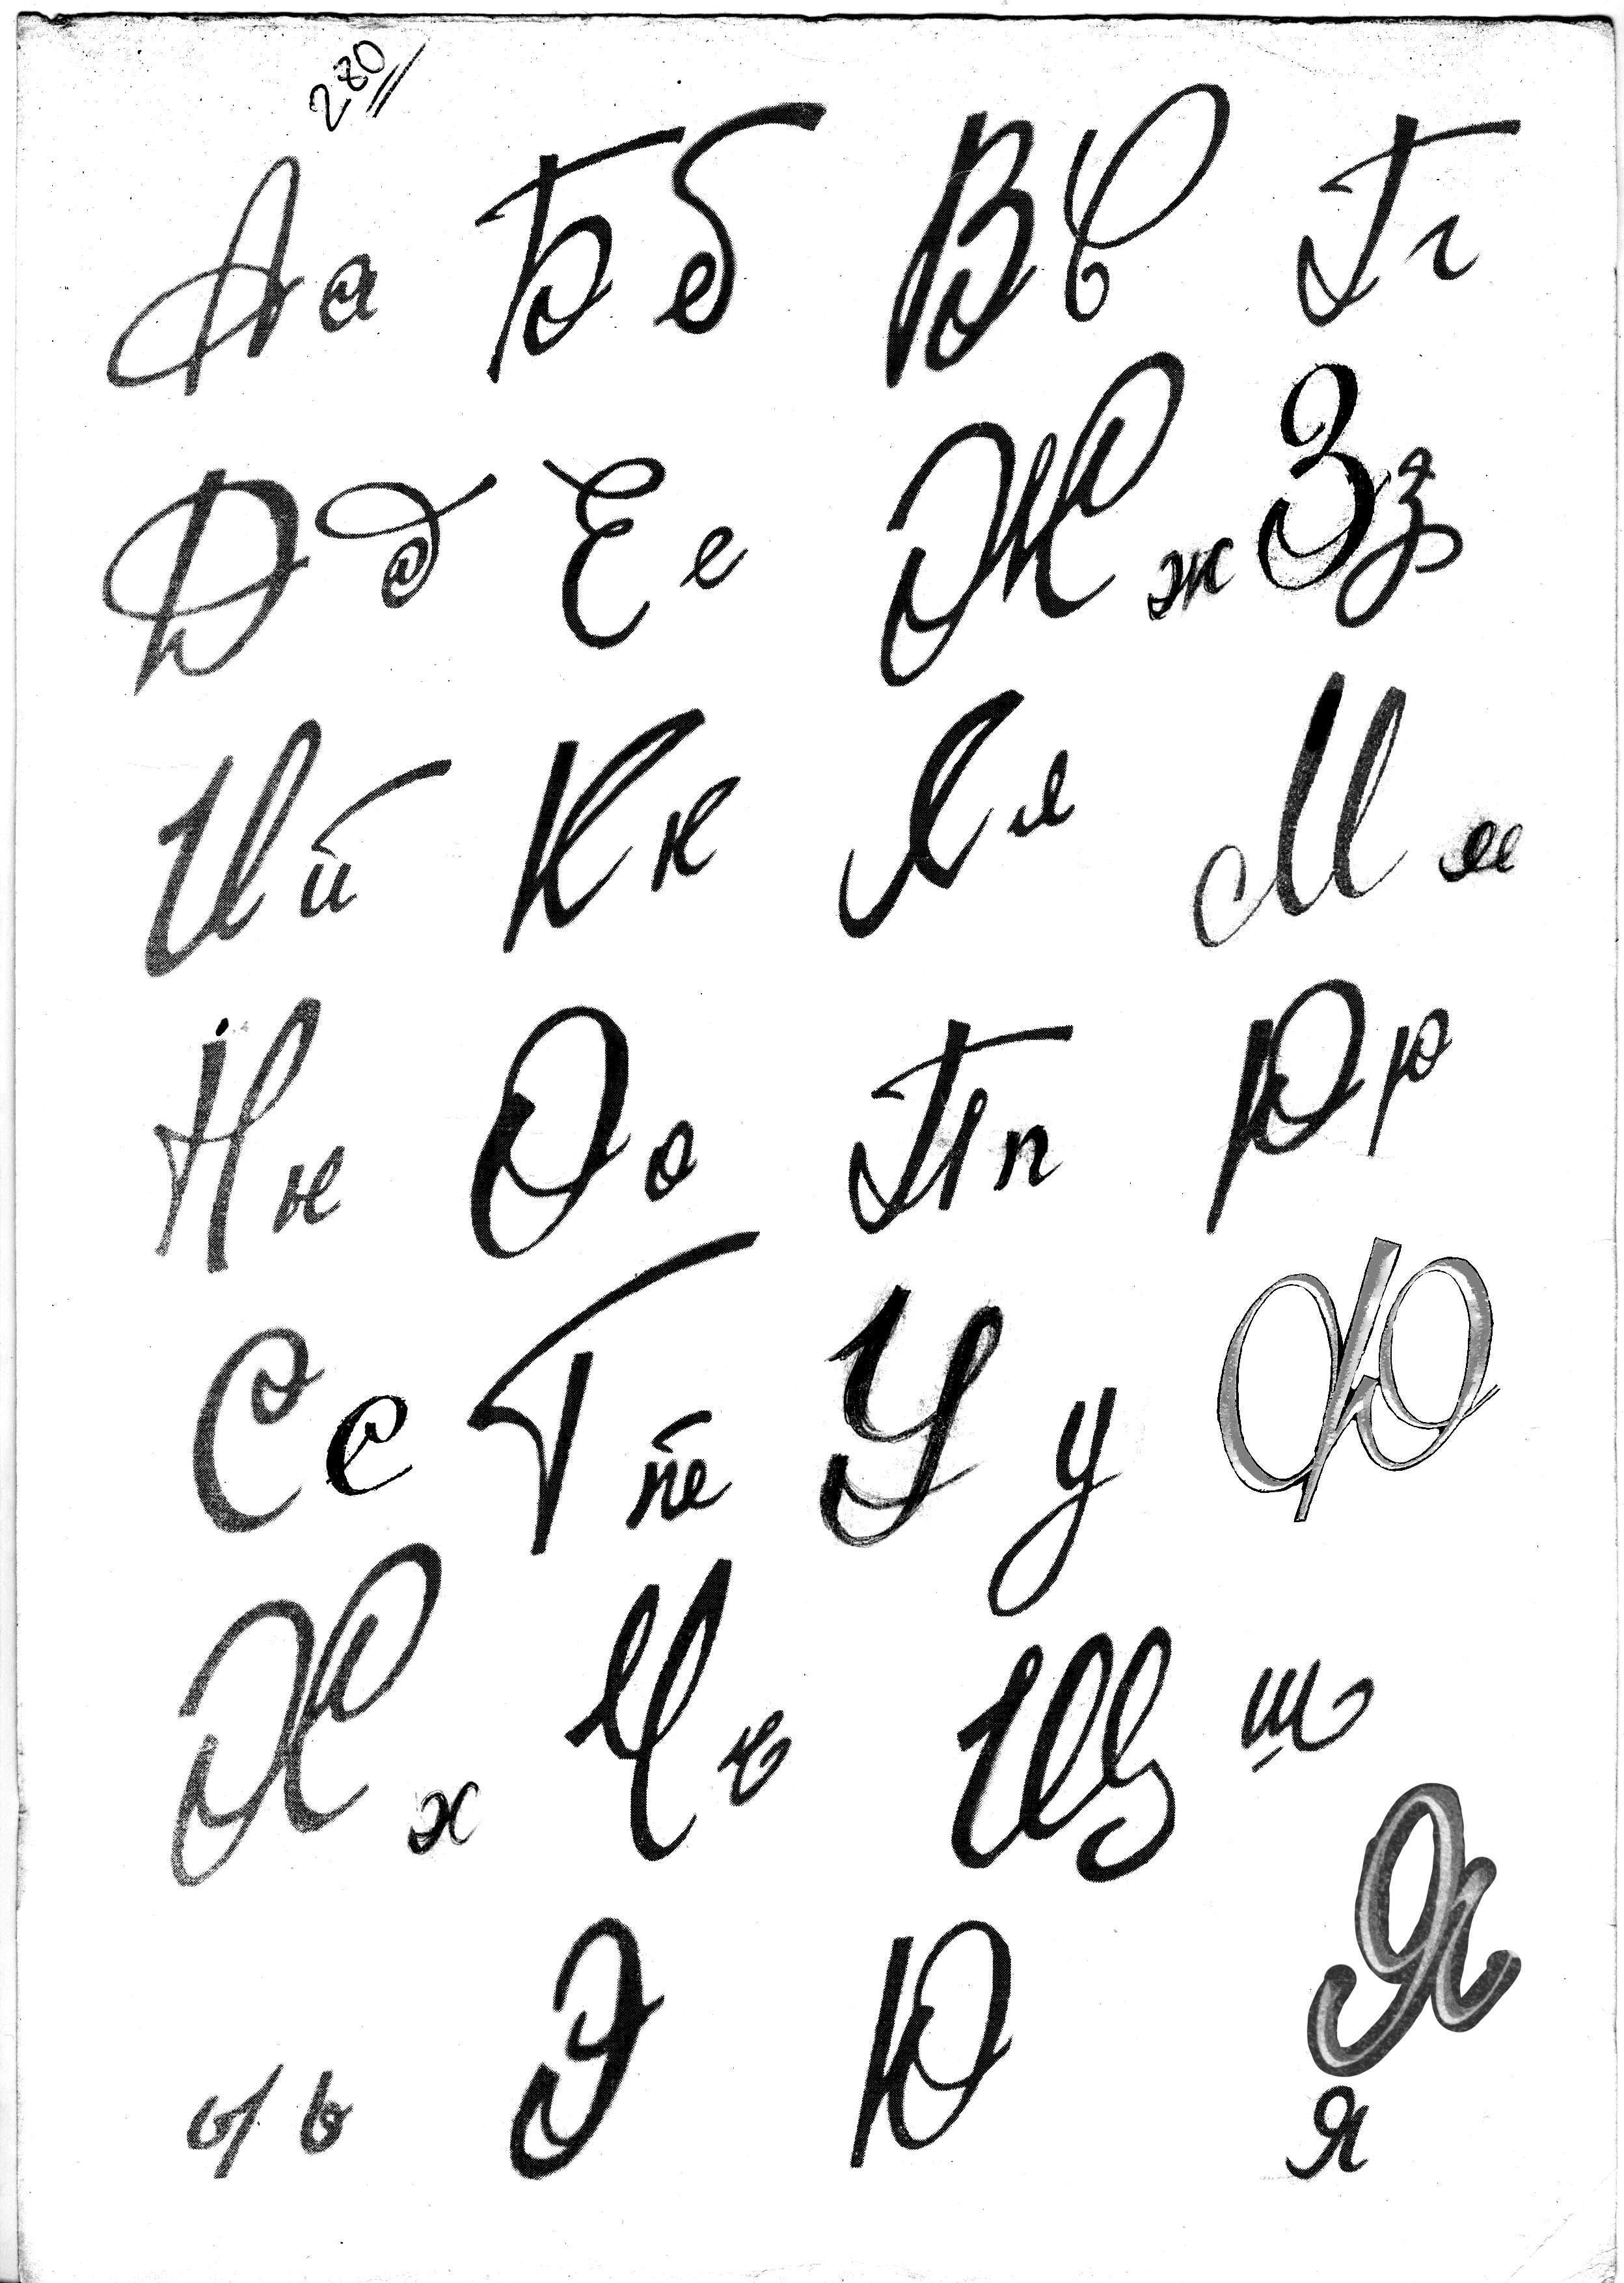 280
Аа Бб Вв Гг
Дд Ее Жж Зз
Ий Кк Лл Мм
Нн Оо Пп Рр
Сс Тт Уу Ф
Хх Чч Щщ
ы ь Э Ю Я
я